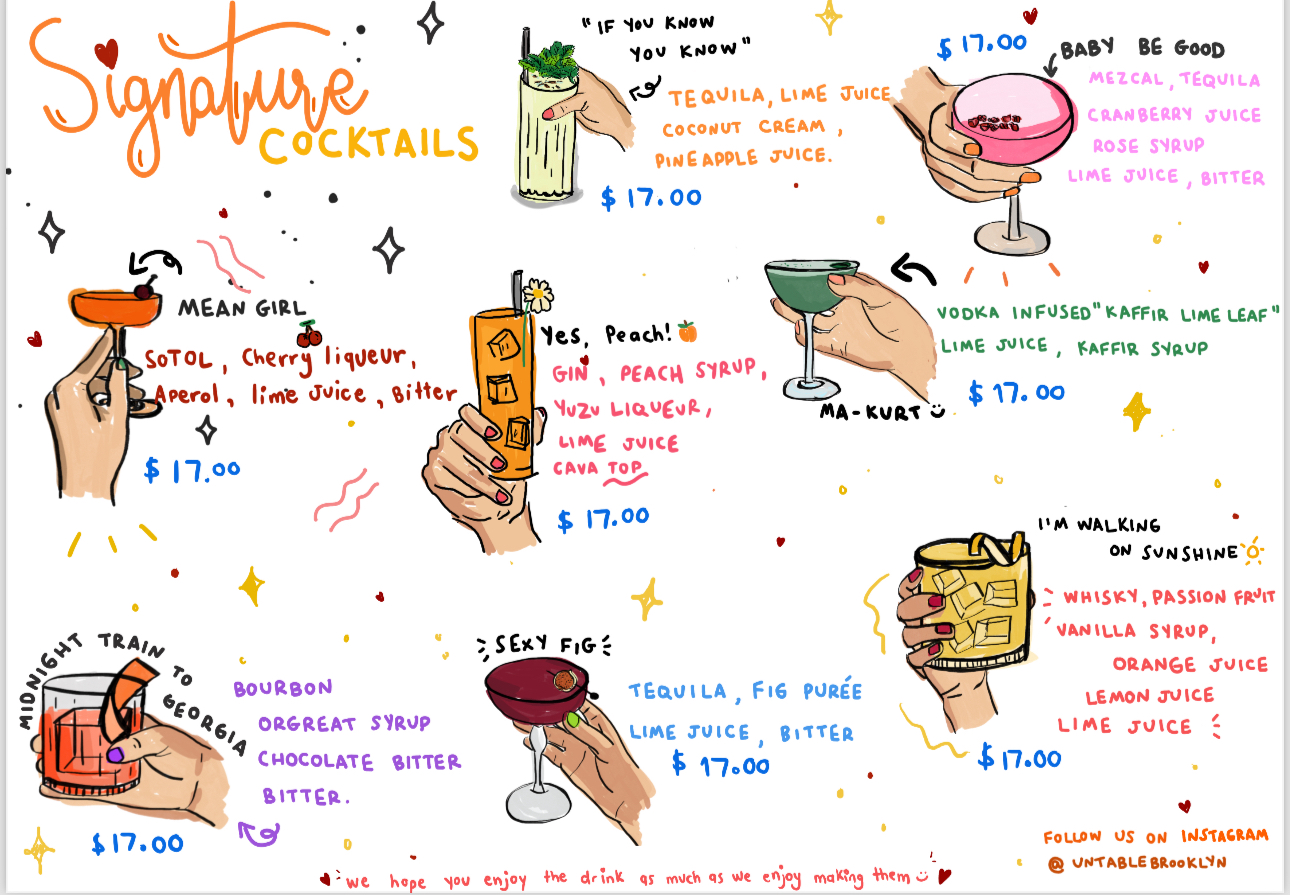 Signature
COCKTAILS
"IF YOU KNOW
YOU KNOW"
TEQUILA, LIME JUICE
COCONUT CREAM,
PINEAPPLE JUICE.
$ 17.00
$ 17.00
BABY BE GOOD
MEZCAL, TEQUILA
CRANBERRY JUICE
ROSE SYRUP
LIME JUICE, BITTER
MEAN GIRL
SOTOL, Cherry liqueur,
Aperol, lime Juice, Bitter
$ 17.00
Yes, Peach!
GIN, PEACH SYRUP,
YUZU LIQUEUR,
LIME JUICE
CAVA TOP
$ 17.00
VODKA INFUSED "KAFFIR LIME LEAF"
LIME JUICE, KAFFIR SYRUP
$ 17.00
MA-KURT
I'M WALKING
ON SUNSHINE
WHISKY, PASSION FRUIT
VANILLA SYRUP,
ORANGE JUICE
LEMON JUICE
LIME JUICE
$17.00
MIDNIGHT TRAIN TO GEORGIA
BOURBON
ORGREAT SYRUP
CHOCOLATE BITTER
BITTER.
$17.00
SEXY FIG
TEQUILA, FIG PURÉE
LIME JUICE, BITTER
$ 17.00
FOLLOW US ON INSTAGRAM
@ UNTABLEBROOKLYN
we hope you enjoy the drink as much as we enjoy making them